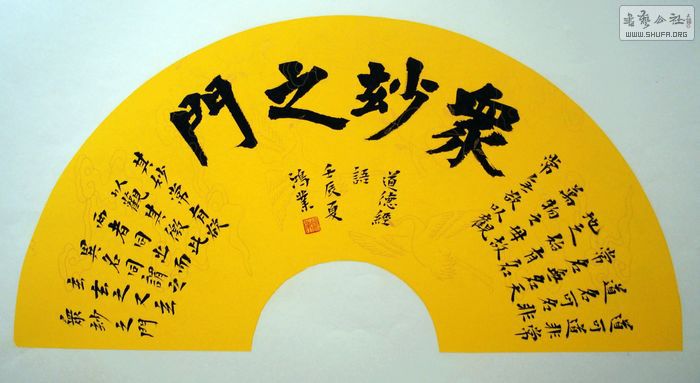 眾玅之門
道可道非常
道名可名非
常名無名天
地之始有名
萬物之母故
常無欲以觀
其妙常有欲
以觀其徼此
兩者同出而
異名同謂之
玄玄之又玄
眾玅之門
道德經
語
壬辰夏
鴻業
WWW.SHUFA.ORG